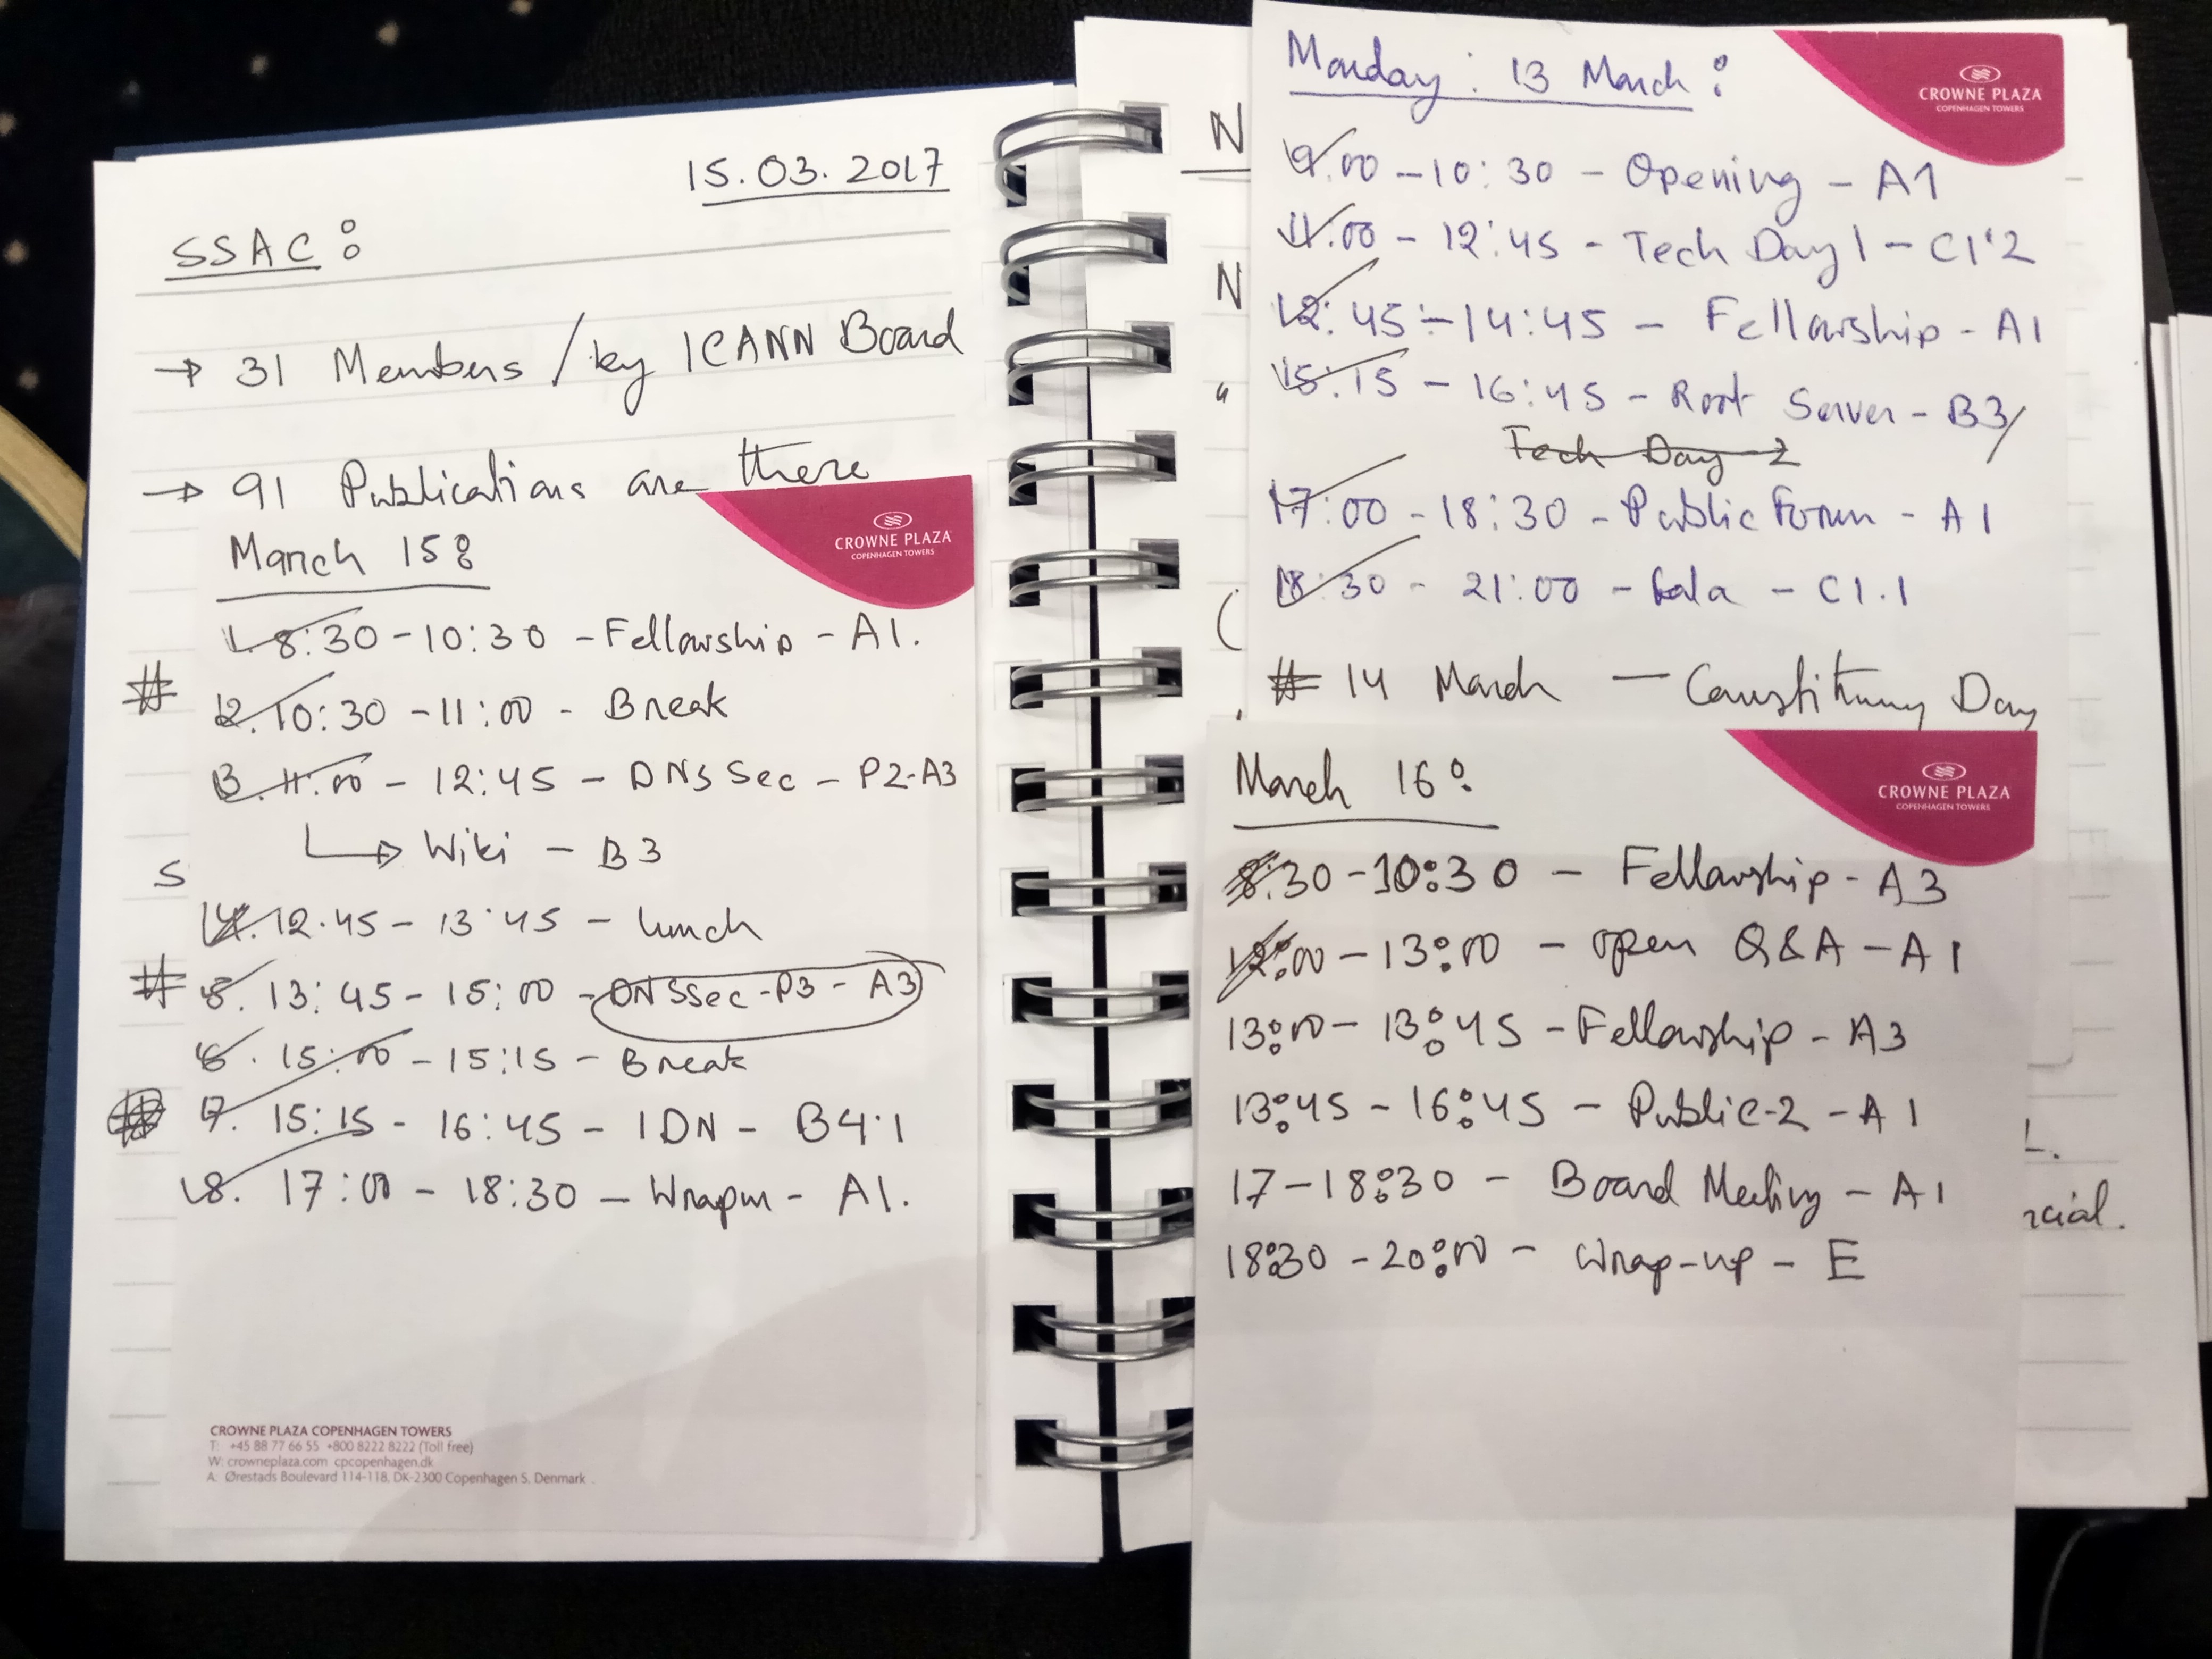 15.03.2017
SSAC:
→ 31 Members / by ICANN Board
→ 91 Publications are there
CROWNE PLAZA
COPENHAGEN TOWERS
March 15:
1. 8:30 - 10:30 - Fellowship - A1.
#
2. 10:30 - 11:00 - Break
3. 11:00 - 12:45 - DNSSec - P2-A3
→ Wiki - B3
S
4. 12.45 - 13:45 - lunch
#
5. 13:45 - 15:00 - DNSSec-P3 - A3
6. 15:00 - 15:15 - Break
#
7. 15:15 - 16:45 - IDN - B4.1
8. 17:00 - 18:30 - Wrapm - A1.
CROWNE PLAZA COPENHAGEN TOWERS
T: +45 88 77 66 55 +800 8222 8222 (Toll free)
W: crowneplaza.com cpcopenhagen.dk
A: Ørestads Boulevard 114-118, DK-2300 Copenhagen S, Denmark
N
N
"
(
Monday: 13 March:
CROWNE PLAZA
COPENHAGEN TOWERS
9:00 - 10:30 - Opening - A1
11:00 - 12:45 - Tech Day 1 - C1.2
12:45 - 14:45 - Fellowship - A1
15:15 - 16:45 - Root Server - B3/
Tech Day 2
17:00 - 18:30 - Public Forum - A1
18:30 - 21:00 - Gala - C1.1
# 14 March — Constituency Day
March 16:
CROWNE PLAZA
COPENHAGEN TOWERS
8:30 - 10:30 - Fellowship - A3
12:00 - 13:00 - open Q&A - A1
13:00 - 13:45 - Fellowship - A3
13:45 - 16:45 - Public-2 - A1
17 - 18:30 - Board Meeting - A1
18:30 - 20:00 - Wrap-up - E
L.
rcial.